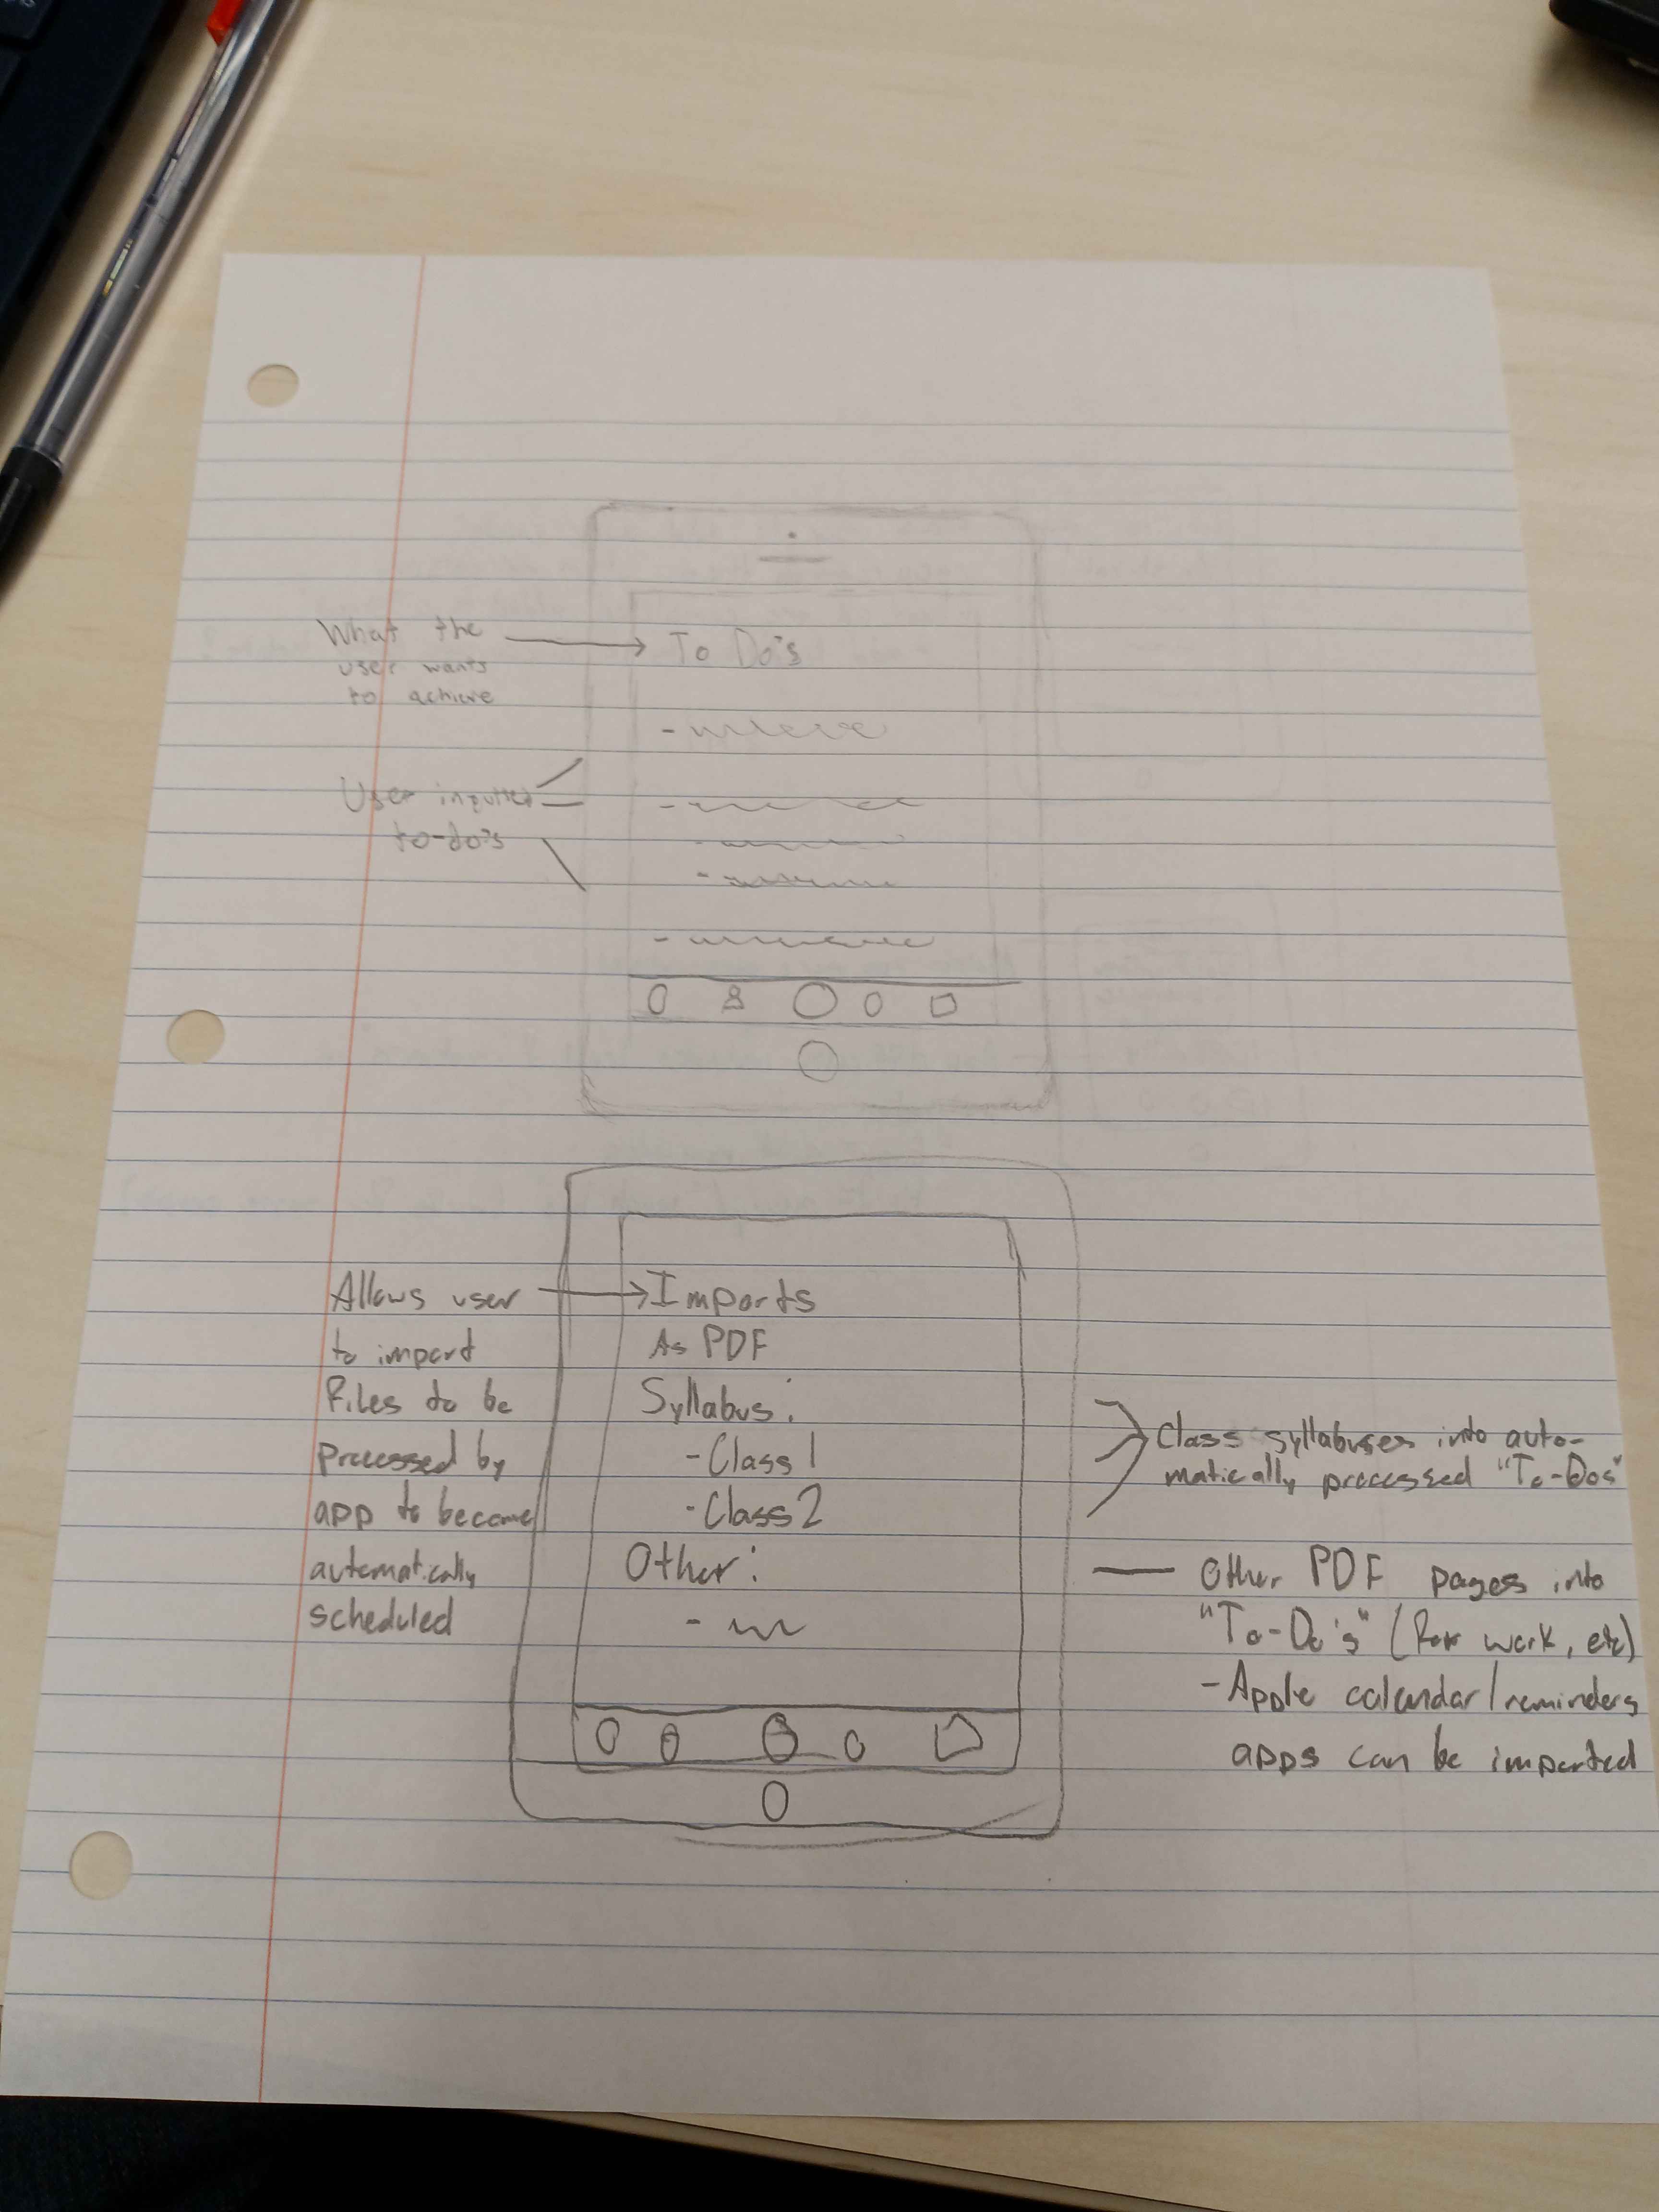 What the
user wants
to achieve
To Do's
User inputted
to-do's
Allows user
to import
files to be
processed by
app to become
automatically
scheduled
Imports
As PDF
Syllabus:
-Class 1
-Class 2
Other:
Class syllabuses into auto-
matically processed "To-Dos"
Other PDF pages into
"To-Do's" (for work, etc)
-Apple calendar/reminders
apps can be imported